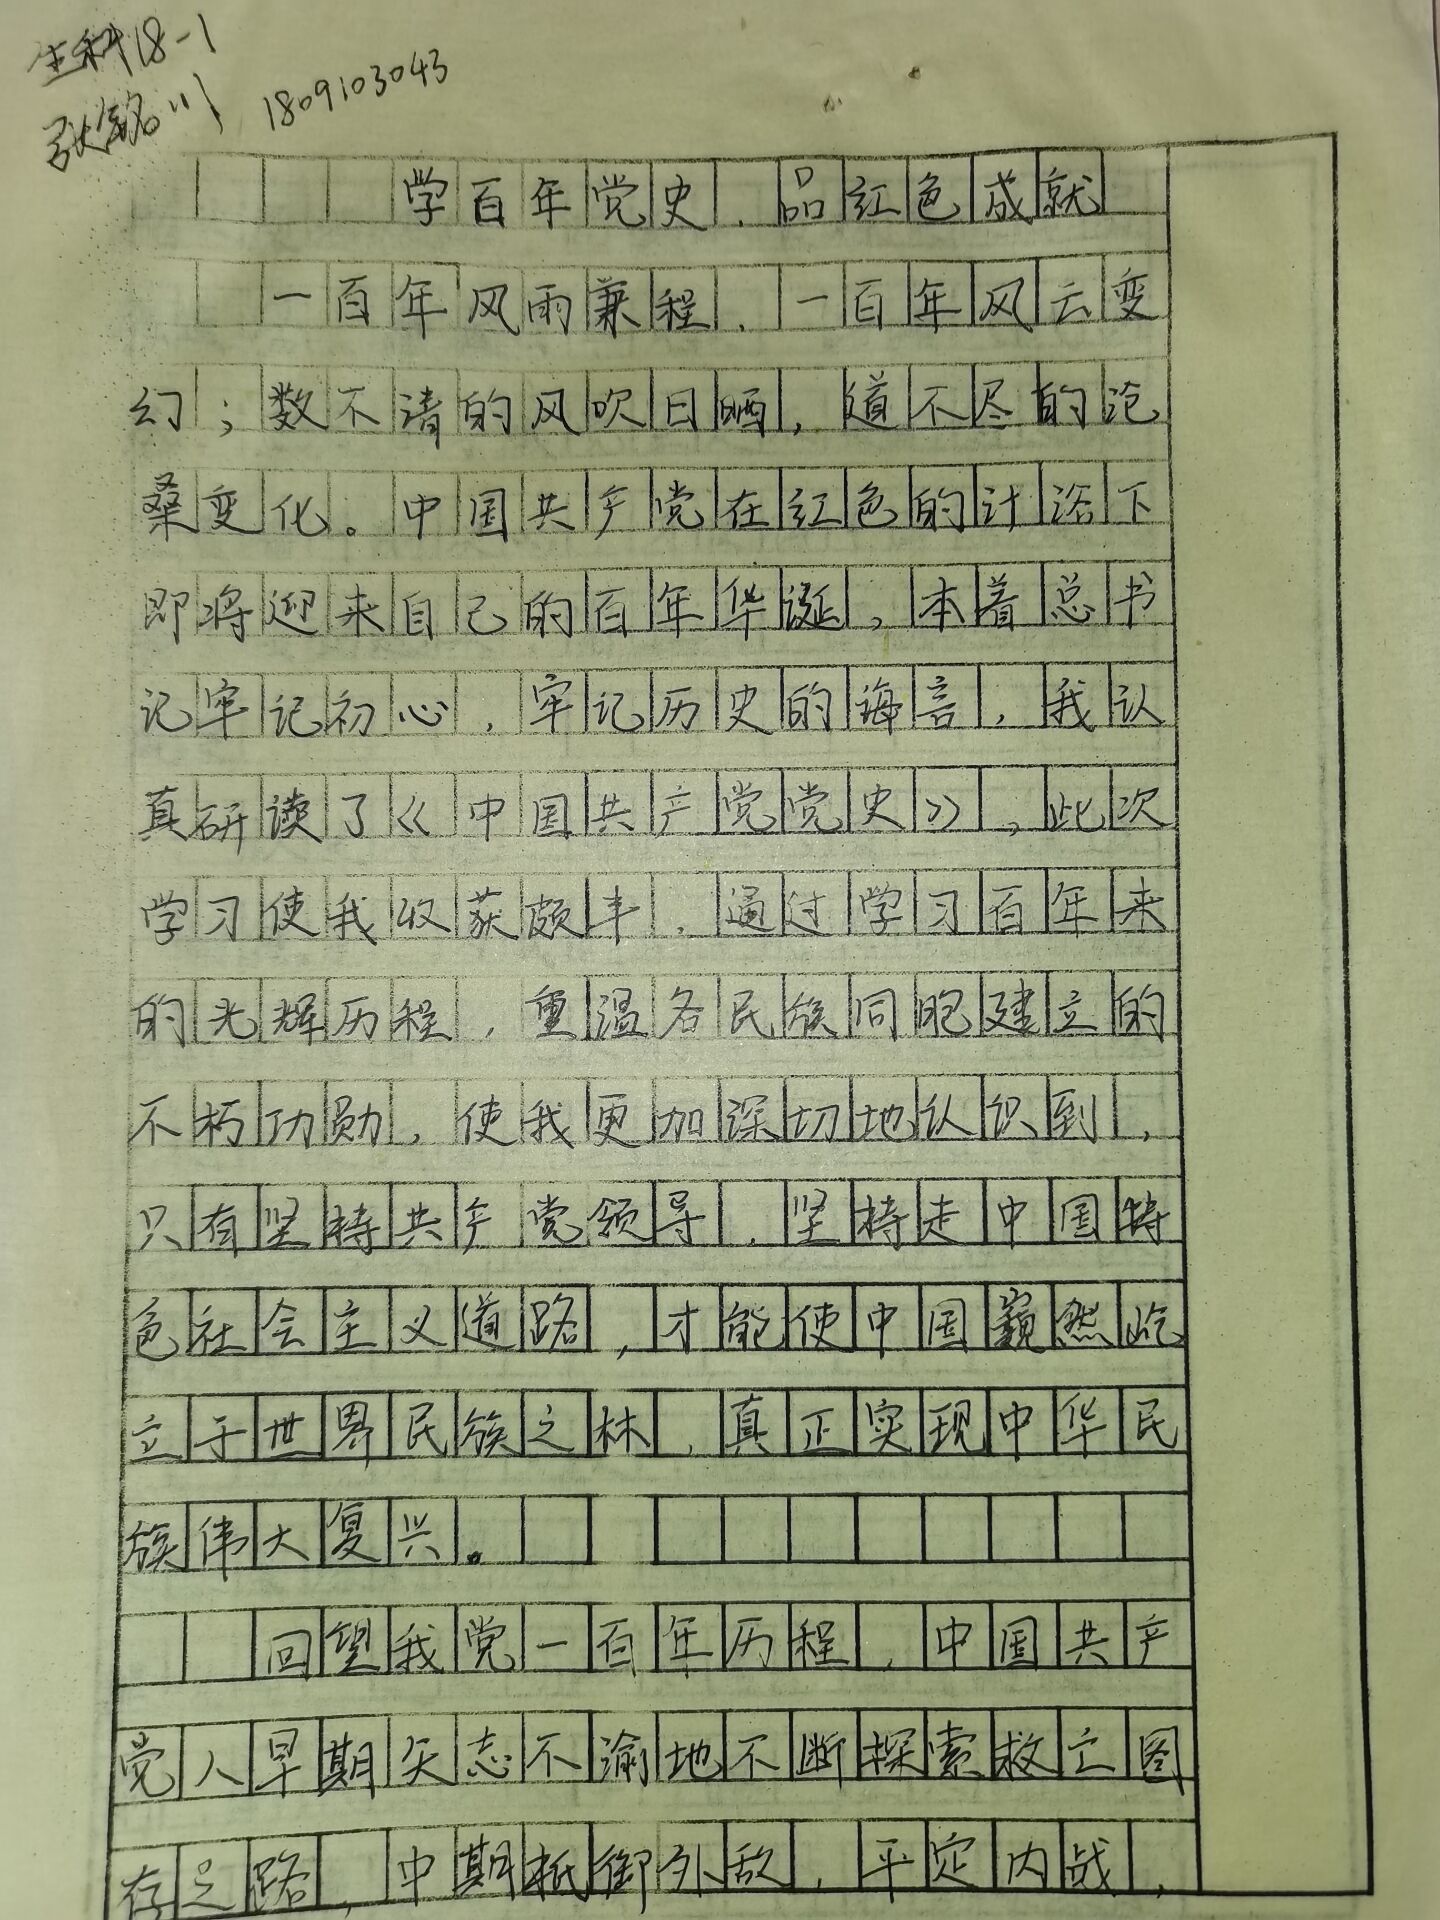 生科18-1
耿铭川 1809103043
学百年党史，品红色成就
一百年风雨兼程，一百年风云变
幻；数不清的风吹日晒，道不尽的沧
桑变化。中国共产党在红色的计浴下
即将迎来自己的百年华诞，本着总书
记牢记初心，牢记历史的诲言，我认
真研读了《中国共产党党史》，此次
学习使我收获颇丰，通过学习百年来
的光辉历程，重温各民族同胞建立的
不朽功勋，使我更加深切地认识到，
只有坚持共产党领导，坚持走中国特
色社会主义道路，才能使中国巍然屹
立于世界民族之林，真正实现中华民
族伟大复兴。
回望我党一百年历程，中国共产
党人早期矢志不渝地不断探索救亡图
存之路，中期抵御外敌，平定内战，